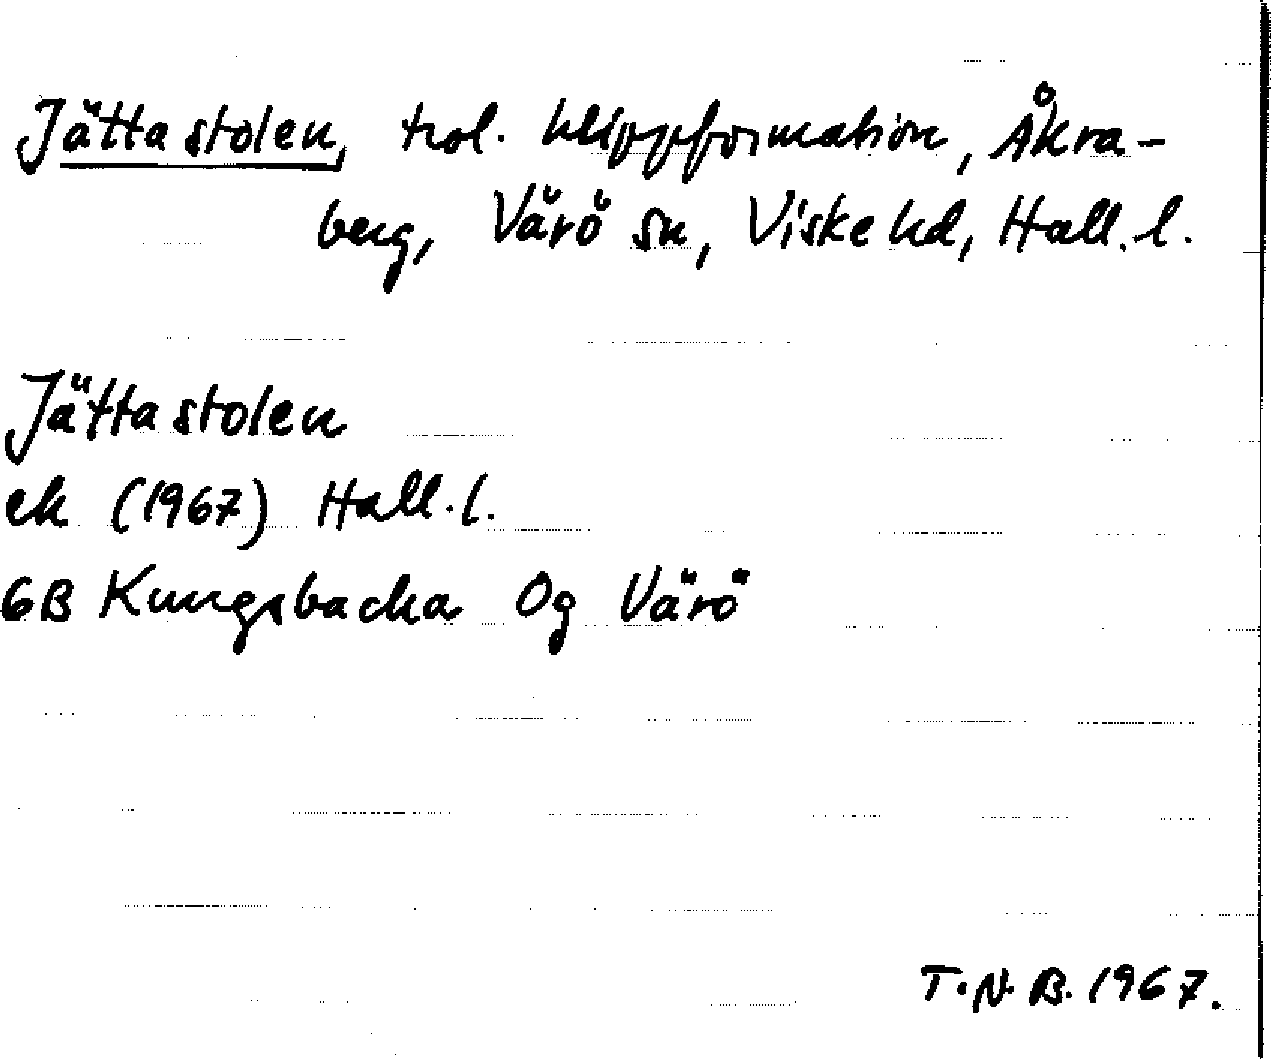 Jättastolen, trol. klippformation, Åkra-
berg, Värö sn, Viske hd, Hall. l.
Jättastolen
ek (1967) Hall. l.
6B Kungsbacka Og Värö
T. N. B. 1967.